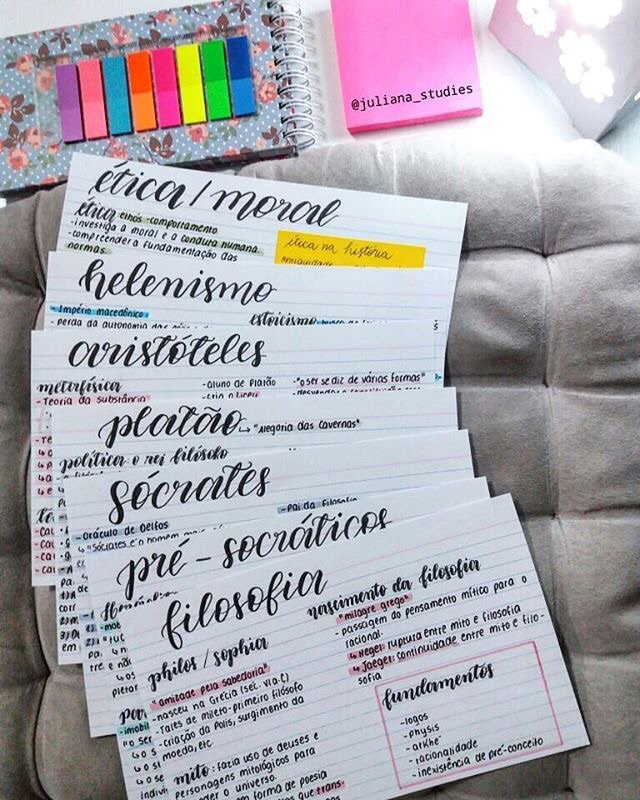 @juliana_studies
ética / moral
ética ethos - comportamento
- investiga a moral e a conduta humana.
- compreender a fundamentação das
normas.
ética na história
Antiguidade
helenismo
- Império macedônico
- perda da autonomia das
estoicismo
aristóteles
metafísica
- Teoria da substância
- aluno de Platão
- cria o Liceu
- "o ser se diz de várias formas"
platão
↳ "Alegoria das Cavernas"
política o rei filósofo
sócrates
- Oráculo de Delfos
↳ "Sócrates é o homem mais
- Pai da Filosofia
pré - socráticos
filosofia
philos / sophia
"amizade pela sabedoria"
- nasceu na Grécia (séc. VI a.C)
- Tales de Mileto - primeiro filósofo
- criação da Polis, surgimento da
moeda, etc.
mito: fazia uso de deuses e
personagens mitológicos para
o universo.
em forma de poesia
que trans-
nascimento da filosofia
"milagre grego"
- passagem do pensamento mítico para o
racional.
↳ Hegel: ruptura entre mito e filosofia
↳ Jaeger: continuidade entre mito e filo-
sofia
fundamentos
- logos
- physis
- arkhé
- racionalidade
- inexistência de pré-conceito